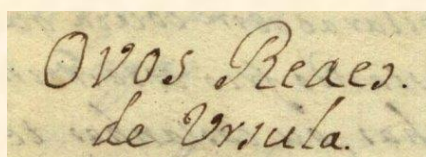 Ovos Reaes.
de Vrsula.